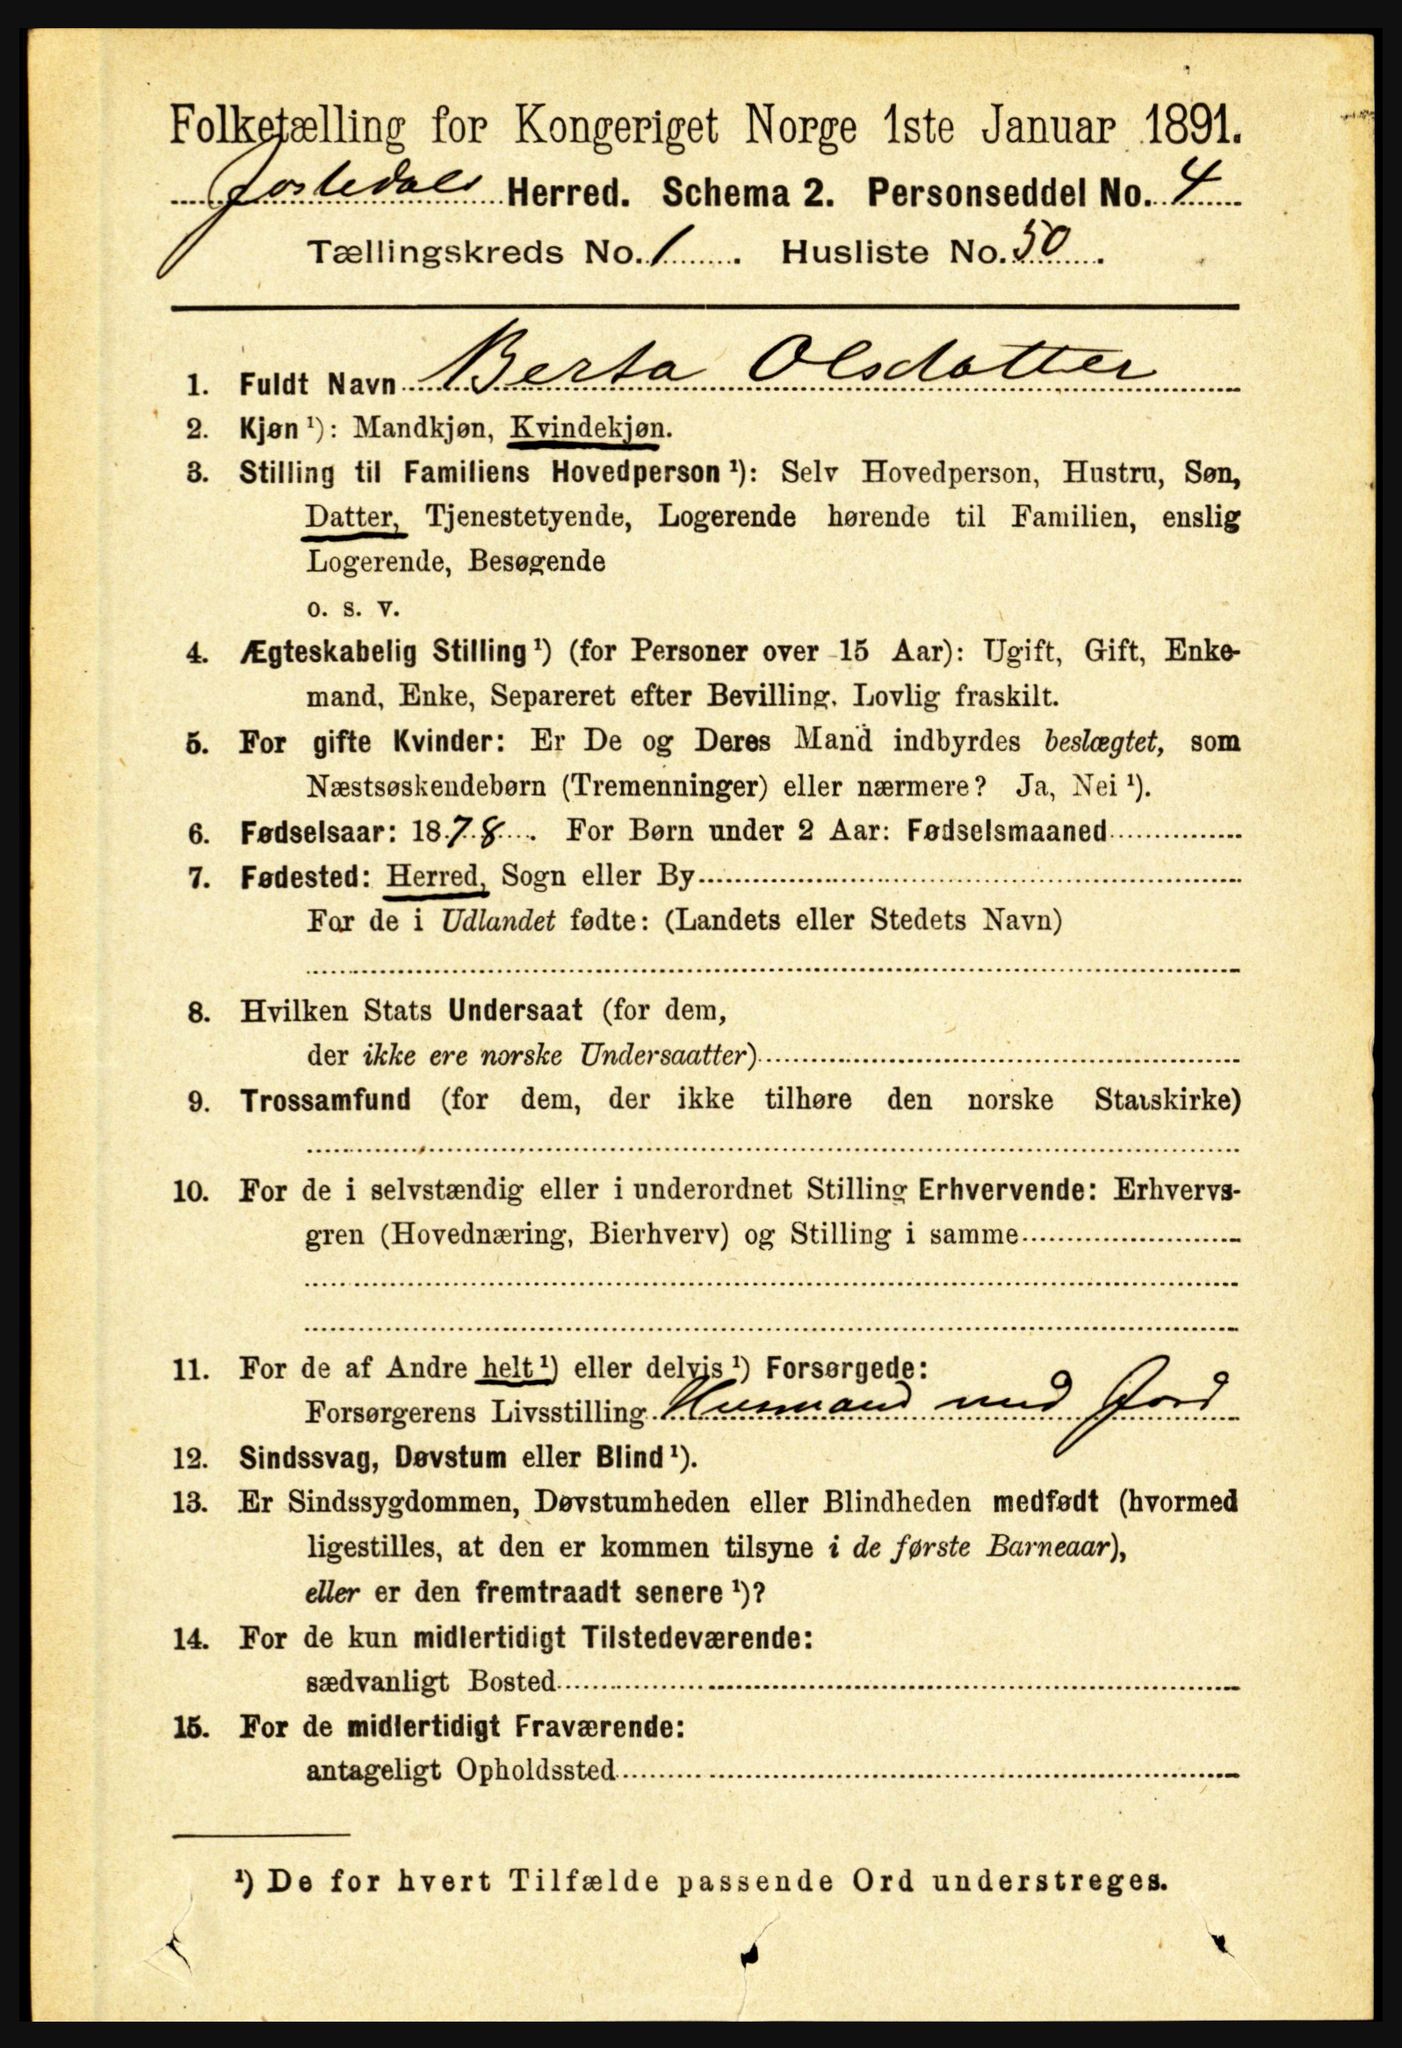 Folketælling for Kongeriget Norge 1ste Januar 1891.
Jostedals Herred. Schema 2. Personseddel No. 4
Tællingskreds No. 1. Husliste No. 50.
1. Fuldt Navn Berta Olsdatter
2. Kjøn ¹): Mandkjøn, Kvindekjøn.
3. Stilling til Familiens Hovedperson ¹): Selv Hovedperson, Hustru, Søn,
Datter, Tjenestetyende, Logerende hørende til Familien, enslig
Logerende, Besøgende
o. s. v.
4. Ægteskabelig Stilling ¹) (for Personer over 15 Aar): Ugift, Gift, Enke-
mand, Enke, Separeret efter Bevilling. Lovlig fraskilt.
5. For gifte Kvinder: Er De og Deres Mand indbyrdes beslægtet, som
Næstsøskendebørn (Tremenninger) eller nærmere? Ja, Nei ¹).
6. Fødselsaar: 1878. For Børn under 2 Aar: Fødselsmaaned
7. Fødested: Herred, Sogn eller By
For de i Udlandet fødte: (Landets eller Stedets Navn)
8. Hvilken Stats Undersaat (for dem,
der ikke ere norske Undersaatter)
9. Trossamfund (for dem, der ikke tilhøre den norske Statskirke)
10. For de i selvstændig eller i underordnet Stilling Erhvervende: Erhvervs-
gren (Hovednæring, Bierhverv) og Stilling i samme
11. For de af Andre helt ¹) eller delvis ¹) Forsørgede:
Forsørgerens Livsstilling Husmand med Jord
12. Sindssvag, Døvstum eller Blind ¹).
13. Er Sindssygdommen, Døvstumheden eller Blindheden medfødt (hvormed
ligestilles, at den er kommen tilsyne i de første Barneaar),
eller er den fremtraadt senere ¹)?
14. For de kun midlertidigt Tilstedeværende:
sædvanligt Bosted
15. For de midlertidigt Fraværende:
antageligt Opholdssted
¹) De for hvert Tilfælde passende Ord understreges.